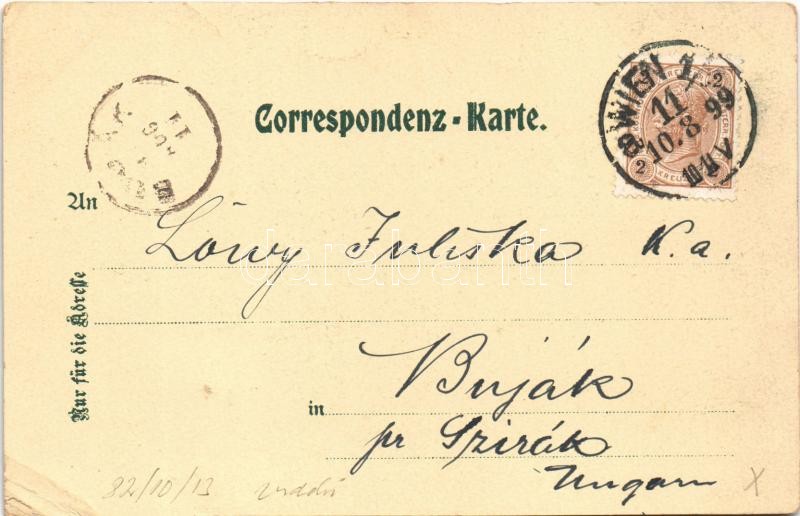 Correspondenz-Karte.
2 2
KREUZER
WIEN 1
11
10.8 99
11
AUG
An Löwy Juliska K. a.
darabanth
Nur für die Adresse
in Buják
pr Szirák
Ungarn
82/10/13
X